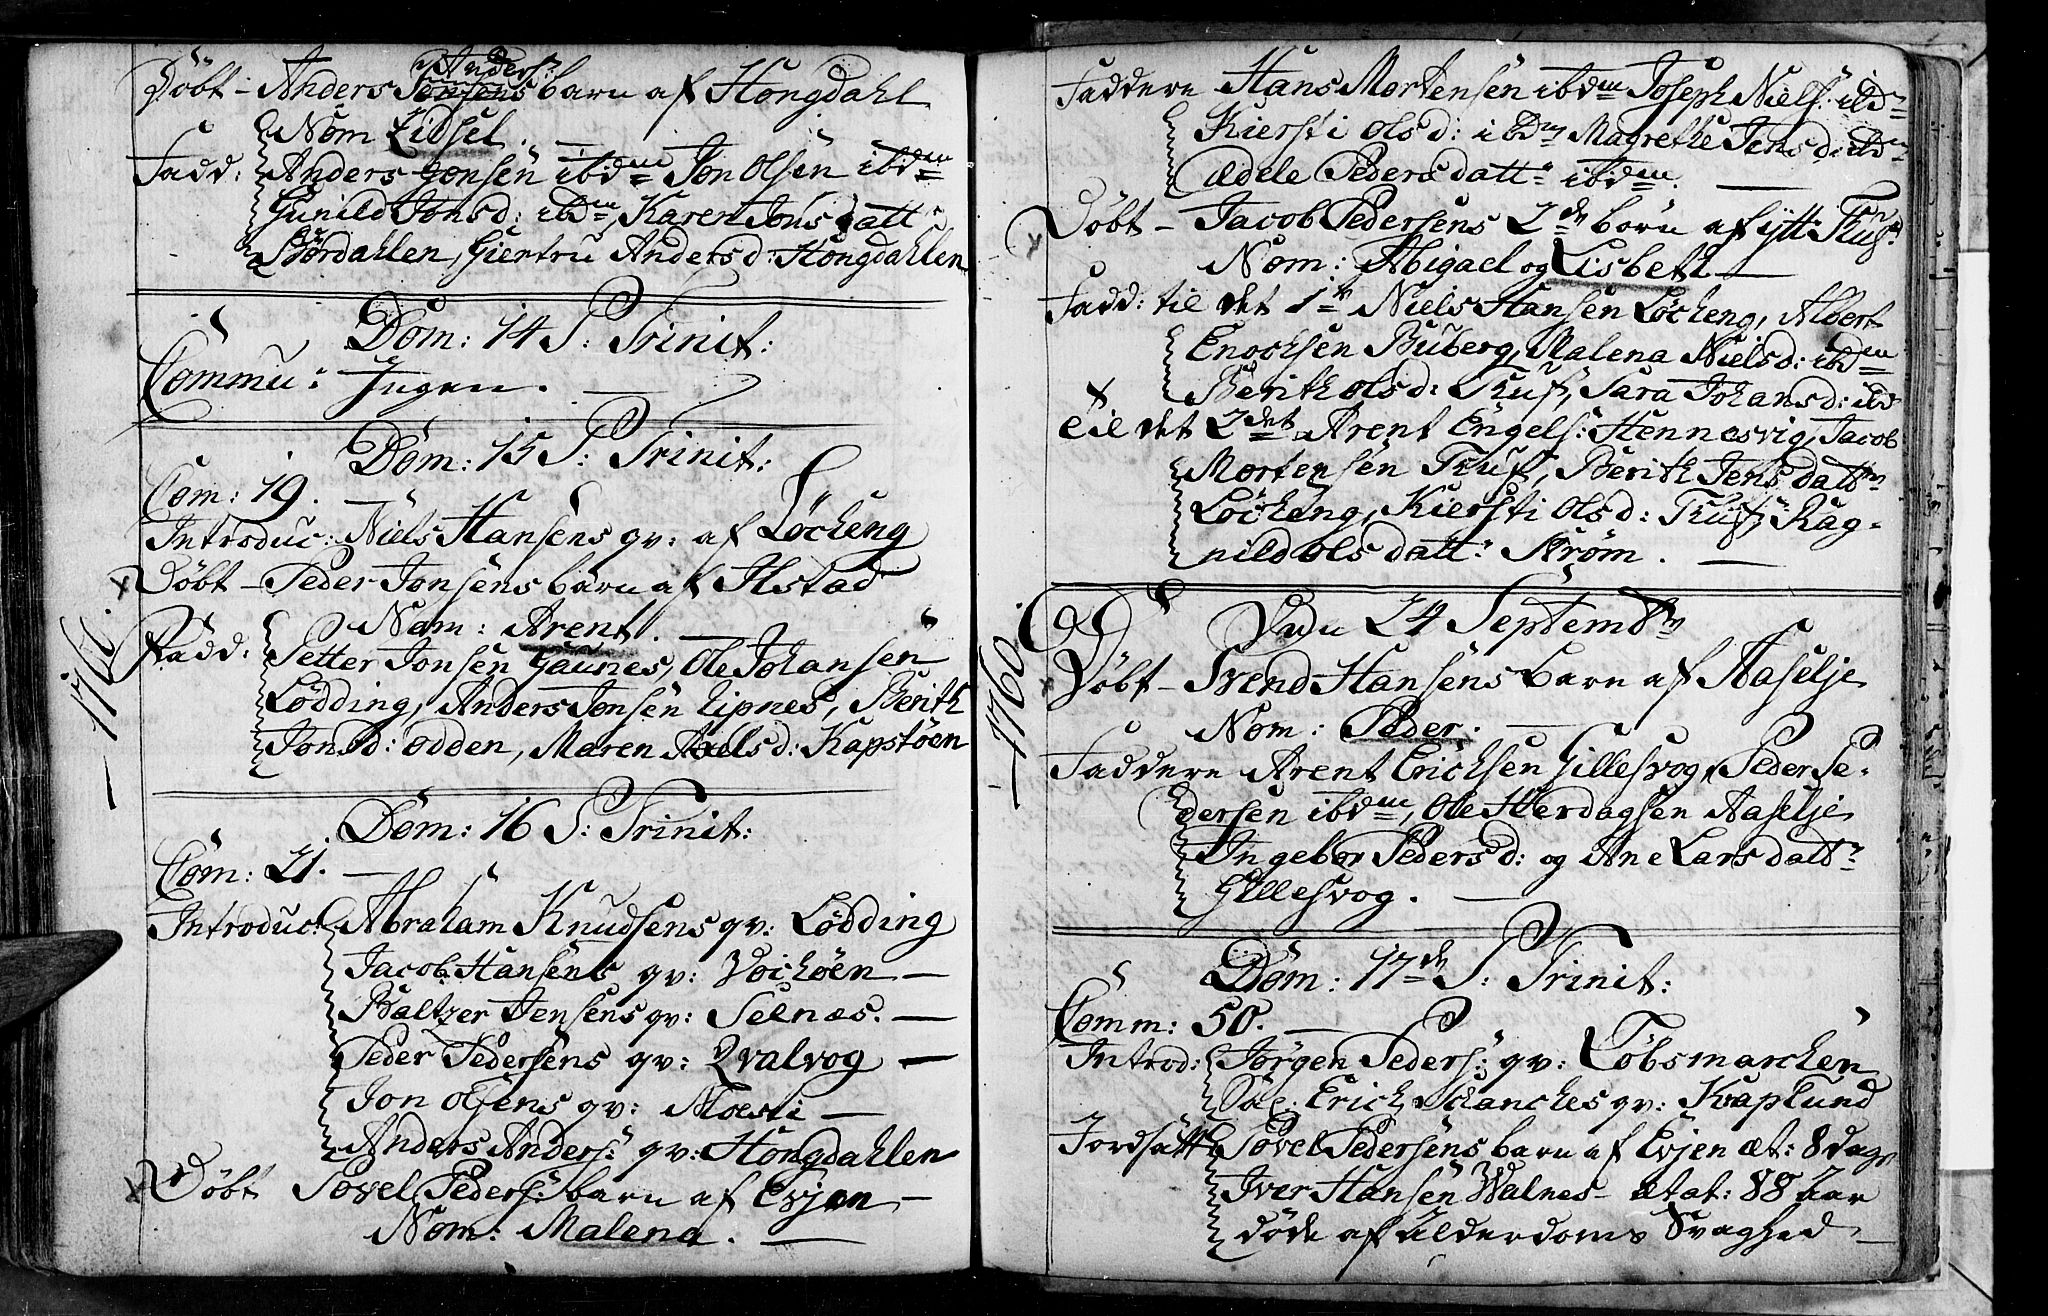 Døbt - Anders Anders: barn af Hongdahl
Nom Zidsel.
Fadd: Anders Jonsen ibdm Jon Olsen ibdm
Gunild Jonsd: ibdm, Karen Jons datt:
Børdahlen, Giertru Anders d: Hongdahlen
Dom: 14 S: Trinit:
Commu: Ingen.
Dom: 15 S: Trinit:
Com: 19.
Introduc: Niels Hansens qv: af Løcheng
Døbt - Peder Jonsens barn af Ilstad
Nom: Arent.
Fadd: Petter Jonsen Gaunes, Ole Johansen
Lødding, Anders Jonsen Lipnes, Berith
Jonsd: Odden, Maren Axels d: Kapstøen
-1760.
Dom: 16 S: Trinit:
Com: 21.
Introduc: Abraham Knudsens qv: Lødding
Jacob Hansens qv: Vochøen
Baltzer Jensens qv: Selnæs.
Peder Pedersens qv: Qvalvog
Jon Olsens qv: Moesti
Anders Anders: qv: Hongdahlen
Døbt Povel Peders: barn af Evjen
Nom: Malena.
Faddere Hans Mortensen ibdm Joseph Niels: ibdm
Kiersti Ols d: ibdm Magrethe Jens d: ibdm
Ædele Peders datt: ibdm.
Døbt - Jacob Pedersens 2de børn af ytt
Nom: Abigael og Lisbeth
Fadd: til det 1te Niels Hansen Løcheng, Albert
Enochsen Buberg, Malena Niels d: ibdm
Berith Ols d: Sara Johans d: ibd
til det 2det Arent Engels: Hennesvig, Jacob
Mortensen Berith Jens datter
Løcheng, Kiersti Ols d: Rag-
nild Ols datt: Strøm.
-1760.
Den 24 Septembr
Døbt - Svend Hansens barn af Aaselje
Nom: Peder.
Faddere Arent Erichsen Gillesvog, Peder Pe-
dersen ibdm, Ole Herdagsen Aaselje
Ingebor Peders d: og Ane Lars datter
Gillesvog.
Dom: 17de S: Trinit:
Comm: 50.
Introd: Jørgen Peders: qv: Tøbsmarchen
Sal. Erich Schanches qv: Kvaplund
Jordsatt Povel Pedersens barn af Evjen æt: 8 dage
Iver Hansen Walnes - ætat: 88 Aar
døde af Alderdoms Svaghed